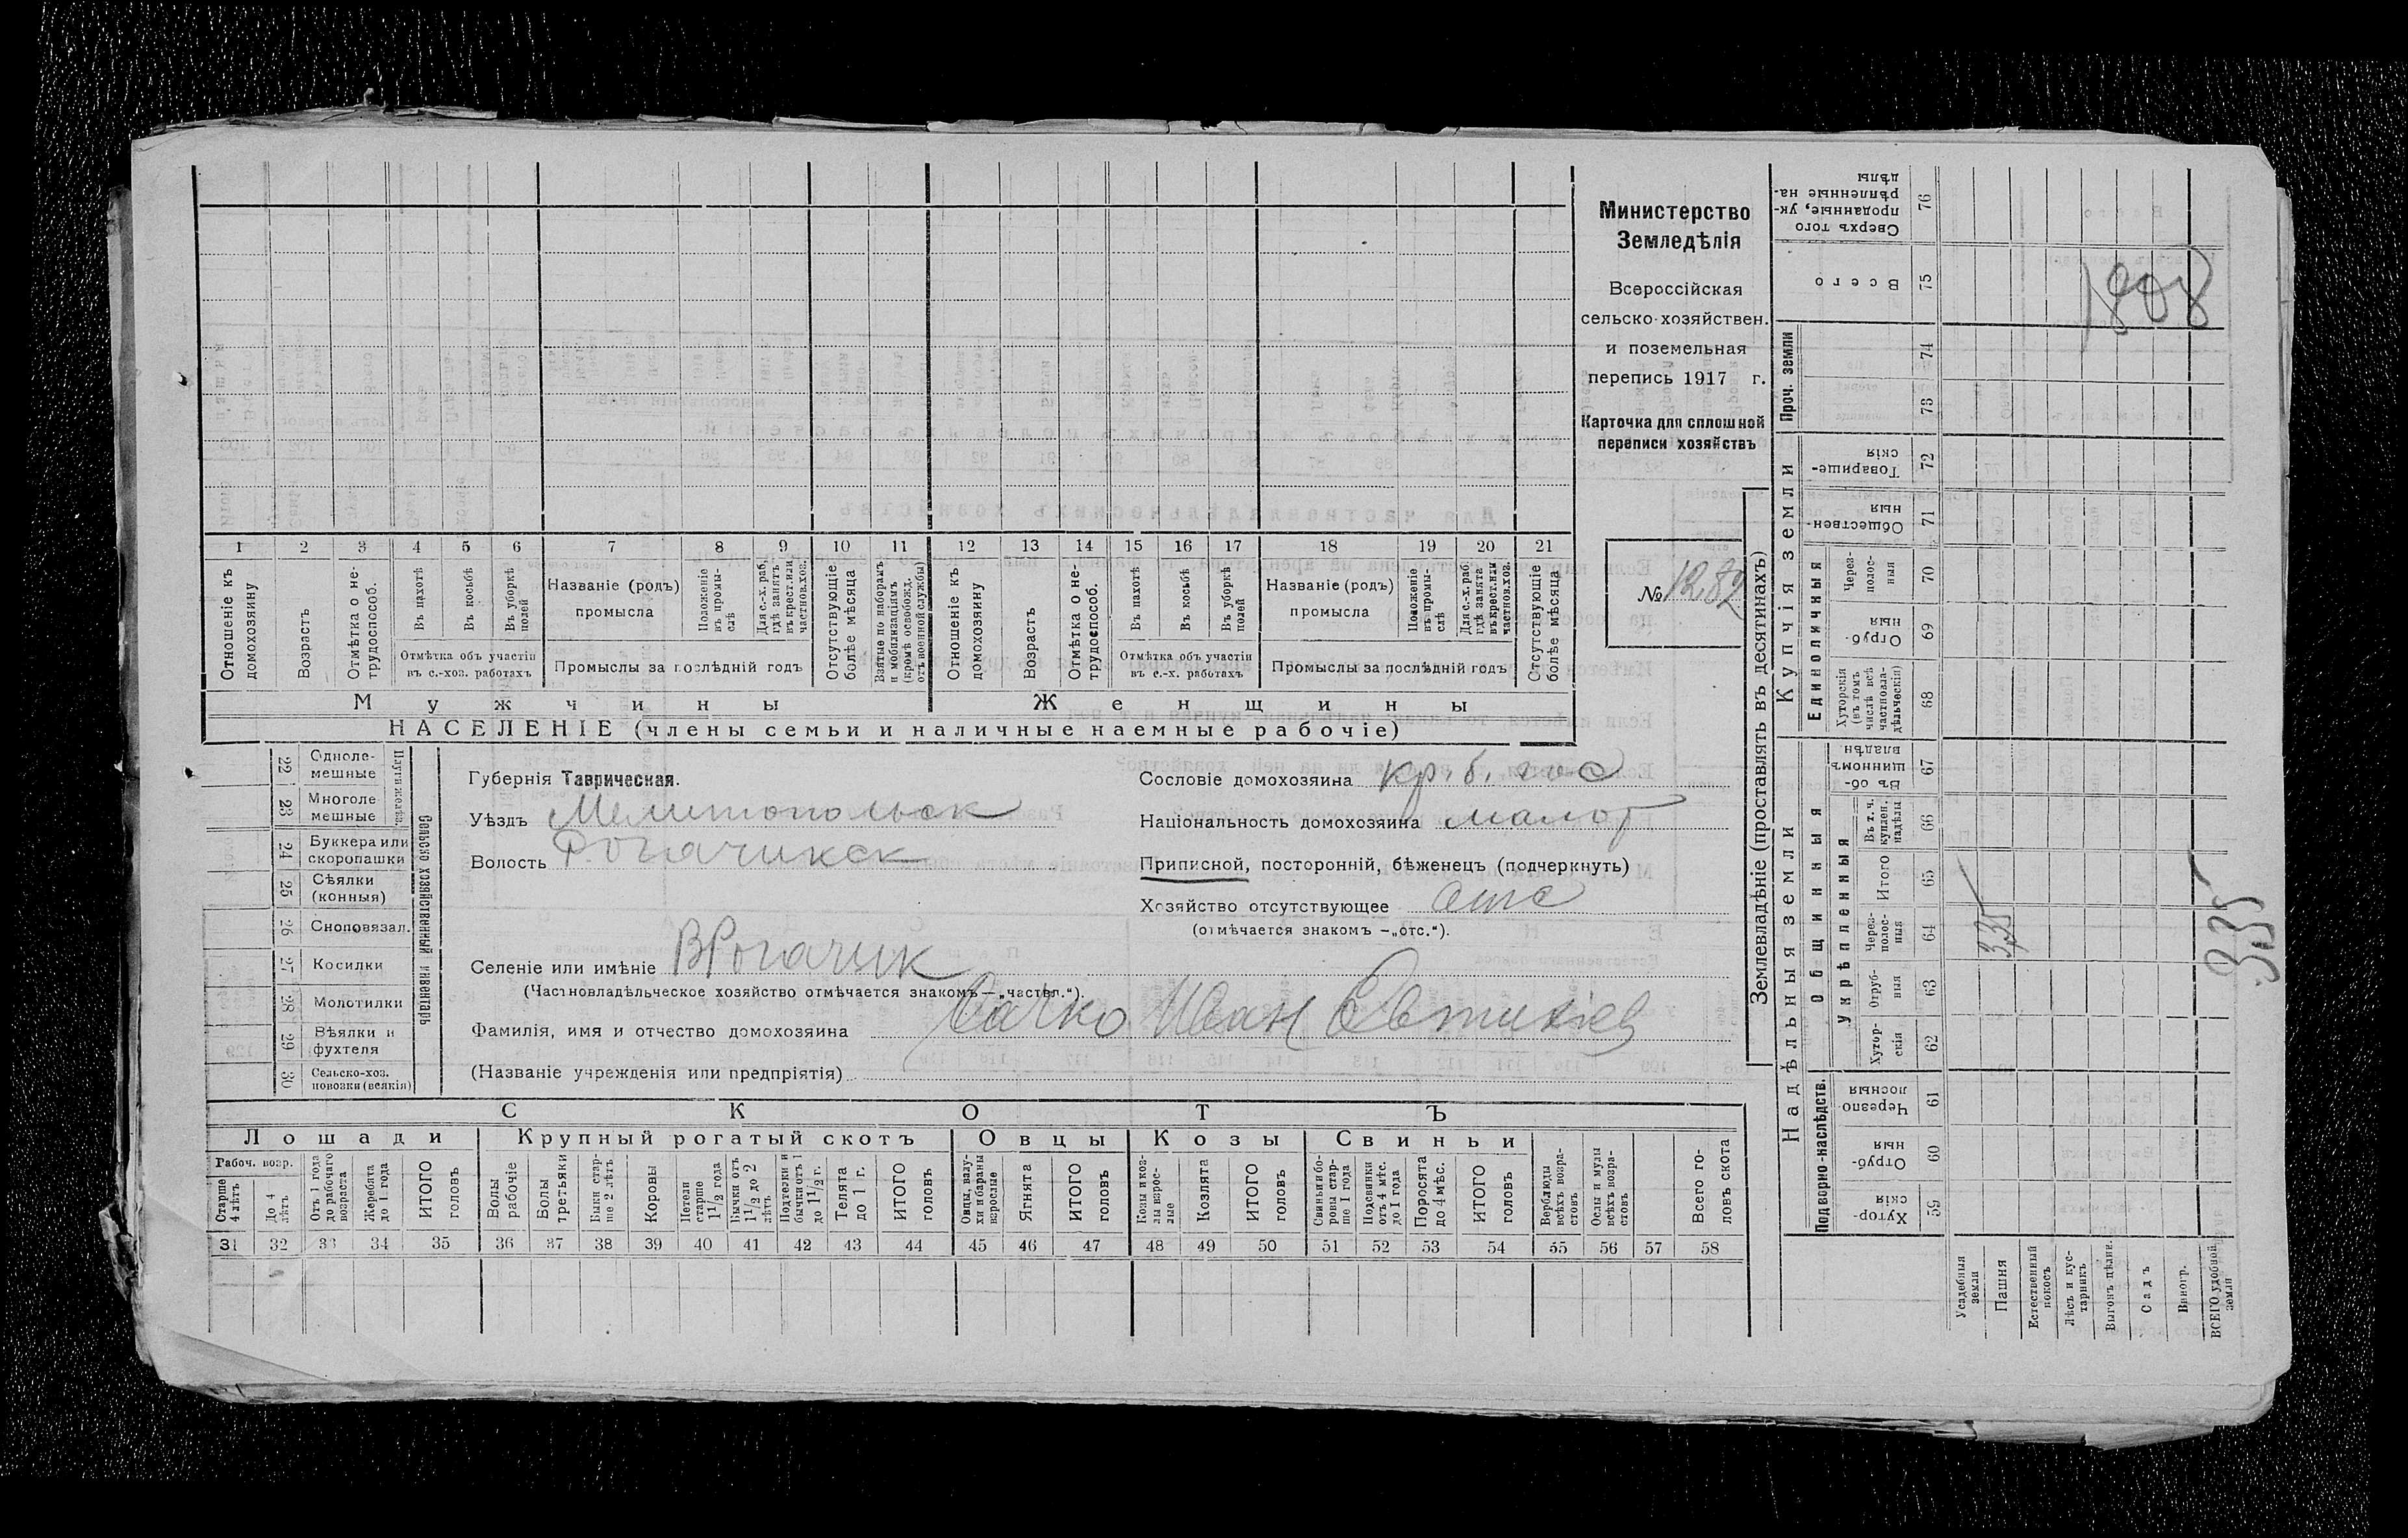 Министерство
Земледѣлія
Всероссійская
сельско-хозяйствен.
и поземельная
перепись 1917 г.
Карточка для сплошной
переписи хозяйствъ
№ 1282
1 2 3 4 5 6 7 8 9 10 11 12 13 14 15 16 17 18 19 20 21
Отношеніе къ домохозяину
Возрастъ
Отмѣтка о не-трудоспособ.
Въ пахотѣ
Въ косьбѣ
Въ уборкѣ полей
Отмѣтка объ участіи въ с.-хоз. работахъ
Названіе (родъ) промысла
Положеніе въ промы-слѣ
Для с.-х. раб. гдѣ занятъ въ крест. или частнов. хоз.
Промыслы за послѣдній годъ
Отсутствующіе болѣе мѣсяца
Взятые по наборамъ и мобилизаціямъ (кромѣ освобожд. отъ военной службы)
Отношеніе къ домохозяину
Возрастъ
Отмѣтка о не-трудоспособ.
Въ пахотѣ
Въ косьбѣ
Въ уборкѣ полей
Отмѣтка объ участіи въ с.-х. работахъ
Названіе (родъ) промысла
Положеніе въ промы-слѣ
Для с.-х. раб. гдѣ занята въ крест. или частнов. хоз.
Промыслы за послѣдній годъ
Отсутствующіе болѣе мѣсяца
Мужчины Женщины
НАСЕЛЕНІЕ (члены семьи и наличные наемные рабочіе)
Сельско хозяйственный инвентарь
Плуги желѣз.
22 Одноле-мешные
23 Многоле мешные
24 Буккера или скоропашки
25 Сѣялки (конныя)
26 Сноповязал.
27 Косилки
28 Молотилки
29 Вѣялки и фухтеля
30 Сельско-хоз. повозки (всякія)
Губернія Таврическая.
Уѣздъ Мелитопольск
Волость Рогачикск
Селеніе или имѣніе В Рогачик
(Частновладѣльческое хозяйство отмѣчается знакомъ—„частвл.“).
Фамилія, имя и отчество домохозяина Сачко Иван Евтихіев
(Названіе учрежденія или предпріятія)
Сословіе домохозяина кр. б. гос
Національность домохозяина малор
Приписной, посторонній, бѣженецъ (подчеркнуть)
Хозяйство отсутствующее отс
(отмѣчается знакомъ -„отс.“).
СКОТЪ
Лошади Крупный рогатый скотъ Овцы Козы Свиньи
Рабоч. возр.
Старше 4 лѣтъ
До 4 лѣтъ
Отъ 1 года до рабочаго возраста
Жеребята до 1 года
ИТОГО головъ
Волы рабочіе
Волы третьяки
Быки стар-ше 2 лѣтъ
Коровы
Нетели старше 1½ года
Бычки отъ 1½ до 2 лѣтъ
Подтелки и бычки отъ 1 до 1½ г.
Телята до 1 г.
ИТОГО головъ
Овцы, валу-хи и бараны взрослые
Ягнята
ИТОГО головъ
Козы и коз-лы взрос-лые
Козлята
ИТОГО головъ
Свиньи и бо-ровы стар-ше 1 года
Подсвинки отъ 4 мѣс. до 1 года
Поросята до 4 мѣс.
ИТОГО головъ
Верблюды всѣхъ возра-стовъ
Ослы и мулы всѣхъ возра-стовъ
Всего го-ловъ скота
31 32 33 34 35 36 37 38 39 40 41 42 43 44 45 46 47 48 49 50 51 52 53 54 55 56 57 58
Землевладѣніе (проставлять въ десятинахъ)
Надѣльныя земли Купчія земли Проч. земли
Подворно-наслѣдств.
Общинныя
Укрѣпленныя
Единоличныя
59 Хутор-скія
60 Отруб-ныя
61 Черезпо лосныя
62 Хутор-скія
63 Отруб-ныя
64 Через-полос-ныя
65 Итого
66 Въ т. ч. куплен. надѣлы
67 Въ об-щинномъ владѣн
68 Хуторскія (въ томъ числѣ всѣ частновла-дѣльческія)
69 Отруб-ныя
70 Через-полос-ныя
71 Обществен-ныя
72 Товарище-скія
73
74
75 Всего
76 Сверхъ того проданные, ук-рѣпленные на-дѣлы
Усадебныя земли
Пашня
Естественный покосъ
Лѣсъ и кус-тарникъ
Выгонъ цѣлин.
Садъ
Виногр.
ВСЕГО удобной земли
3,35
335
1808